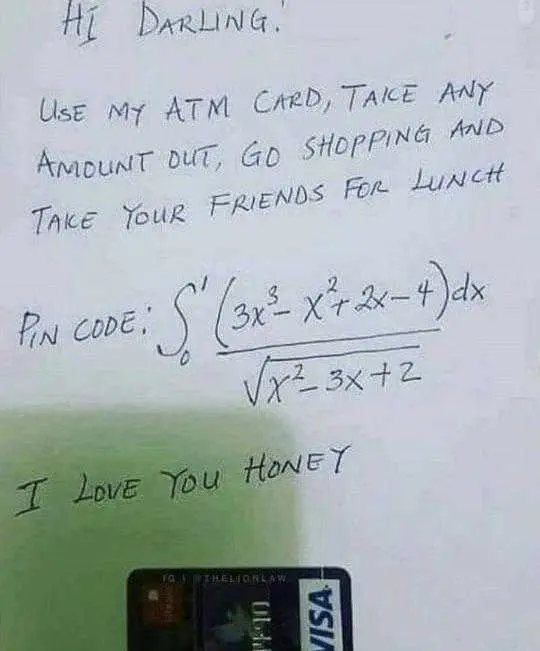 HI DARLING.
USE MY ATM CARD, TAKE ANY
AMOUNT OUT, GO SHOPPING AND
TAKE YOUR FRIENDS FOR LUNCH
PIN CODE: ∫₀¹ (3x³ - x² + 2x - 4)dx
√x² - 3x + 2
I LOVE YOU HONEY
IG | @THELIONLAW
VISA